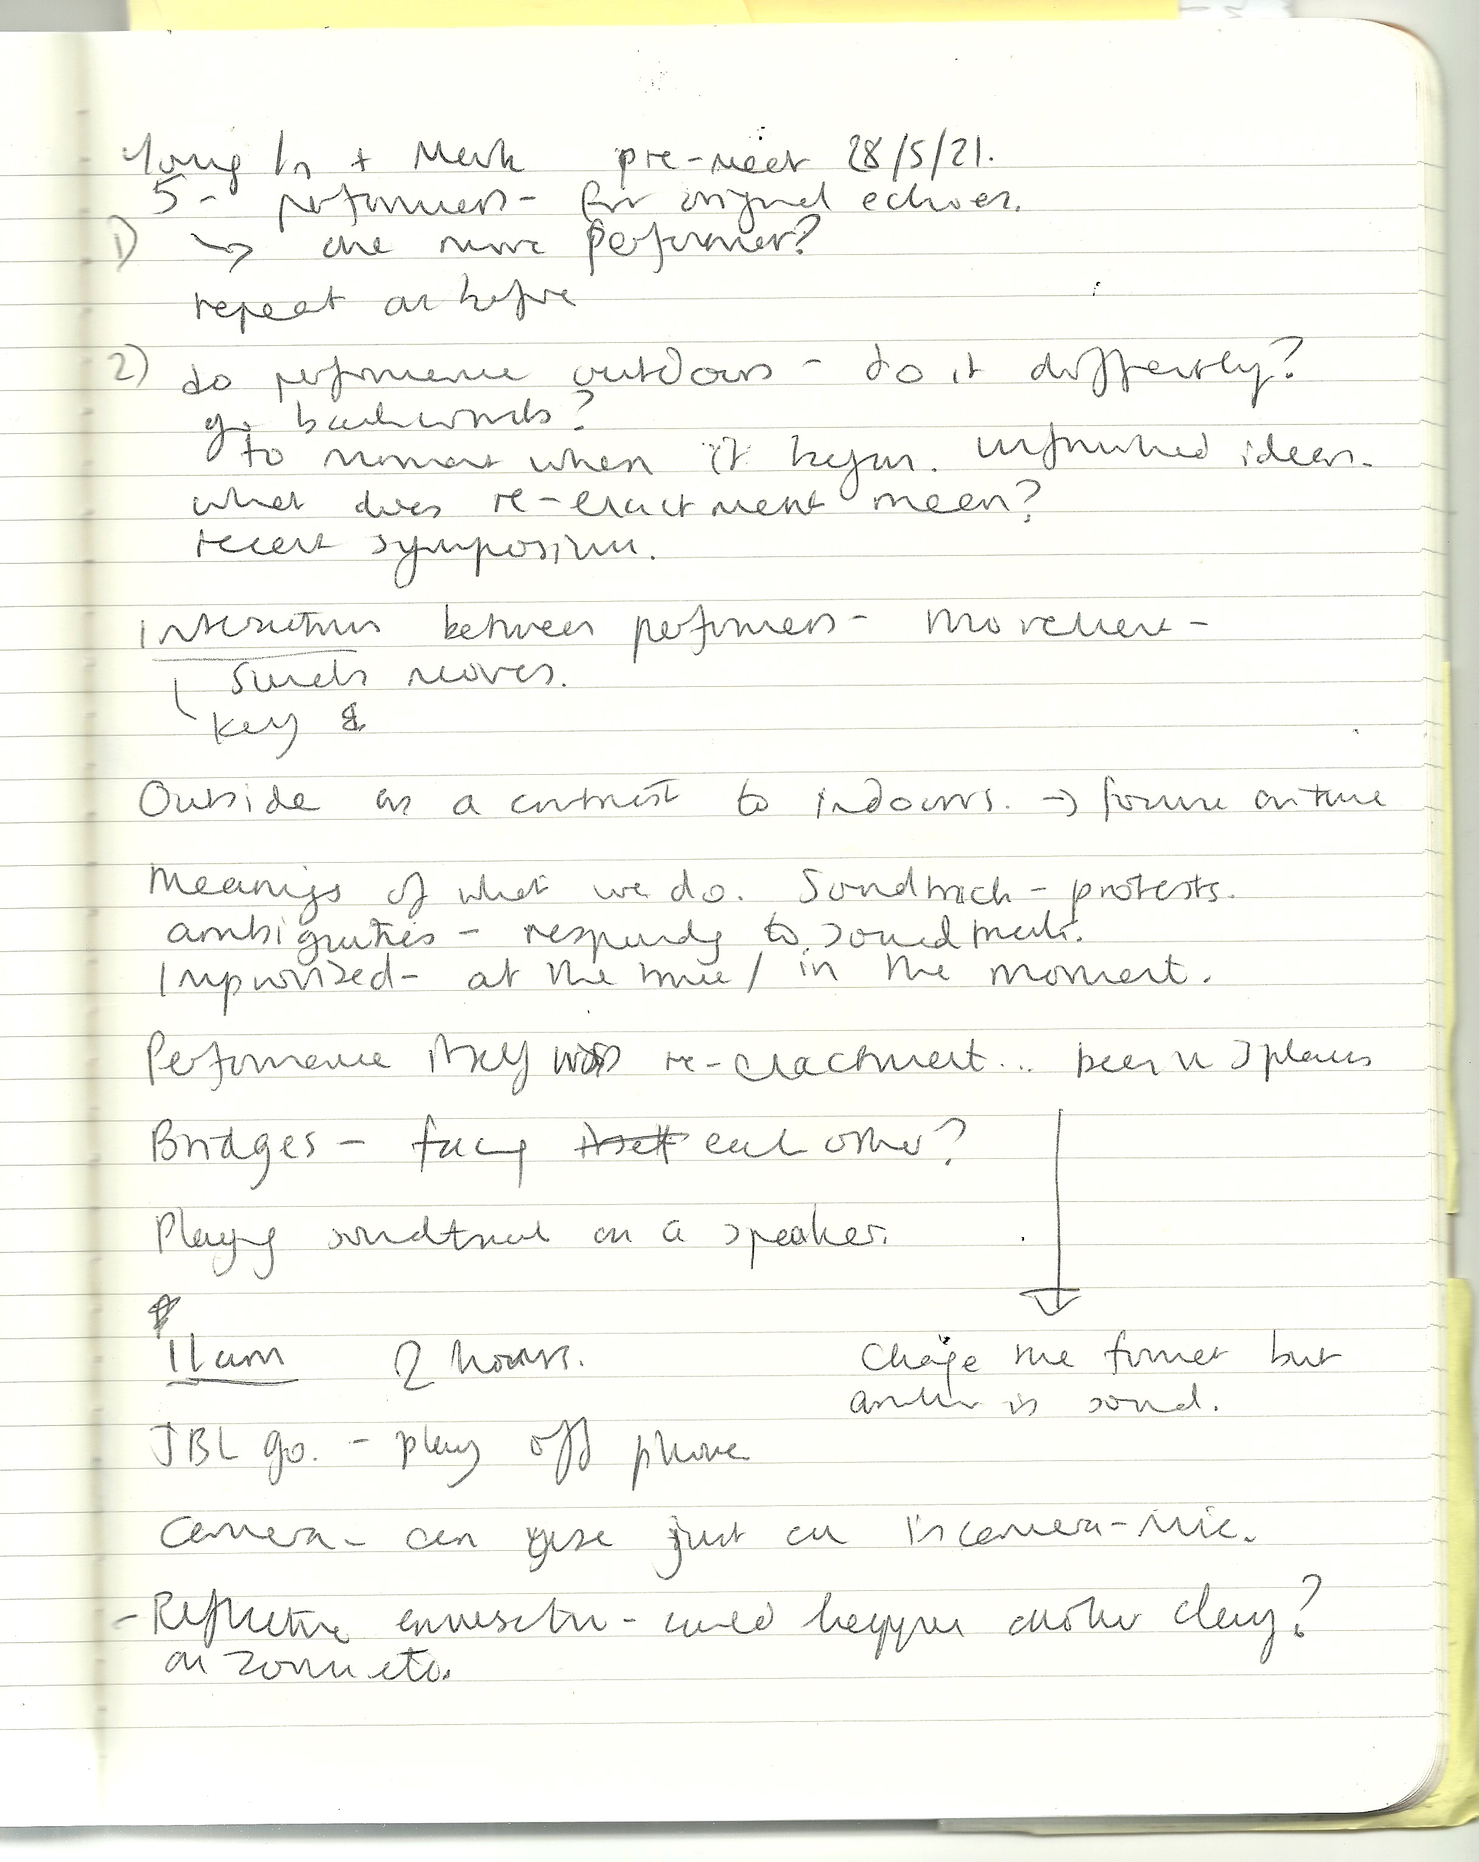 Young In + Mark pre-meet 28/5/21.
5 - performers - for original echoes.
1) → one more performer?
repeat as before
2) do performance outdoors - do it differently?
go backwards?
to moment when it began. unfinished ideas.
what does re-enactment mean?
recent symposium.
Interactions between performers - movement -
sounds moves.
key
Outside as a contrast to indoors. →
Meanings of what we do. Soundtrack - protests.
ambiguities - responding to soundtrack.
Improvised - at the time / in the moment.
Performance itself was re-enactment... been in 3 places
Bridges - facing each other?
Playing soundtrack on a speaker.
11am 2 hours.
Change the format but
anchor is sound.
JBL go. - play off phone
Camera - can use just an in camera-mic.
- Reflective conversation - could happen another day?
on zoom etc.